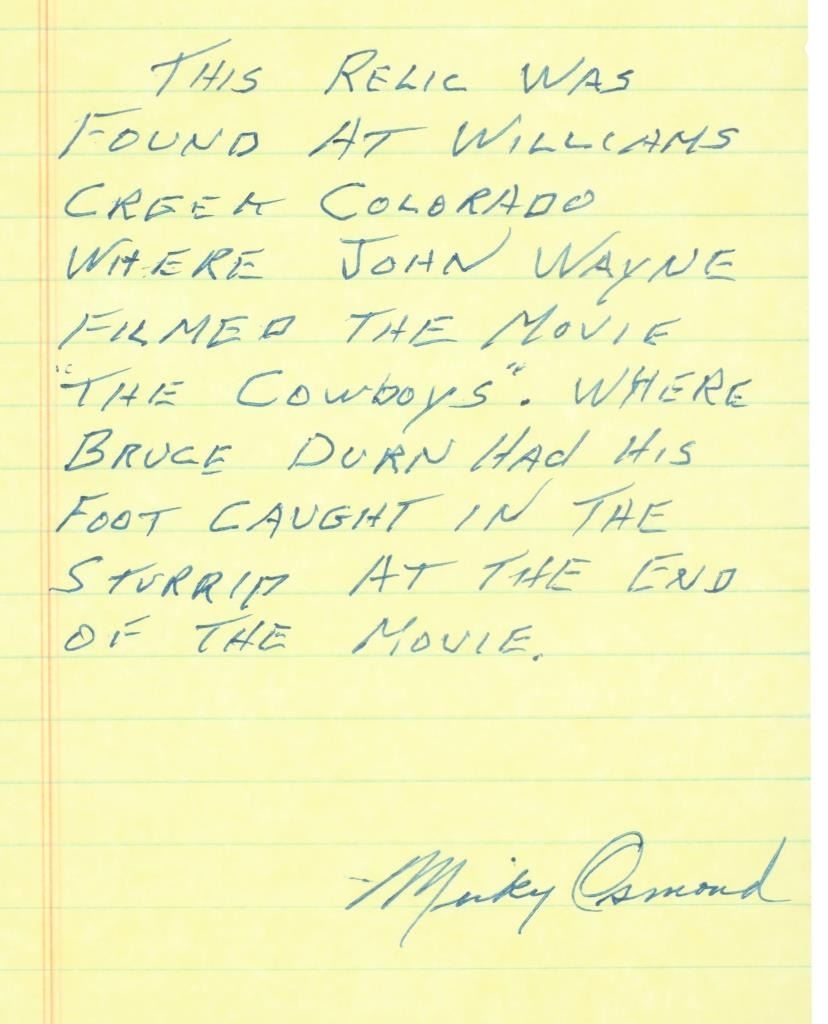 THIS RELIC WAS
FOUND AT WILLIAMS
CREEK COLORADO
WHERE JOHN WAYNE
FILMED THE MOVIE
"THE COWBOYS". WHERE
BRUCE DURN HAd HIS
FOOT CAUGHT IN THE
STURRIP AT THE END
OF THE MOVIE.
Osmond